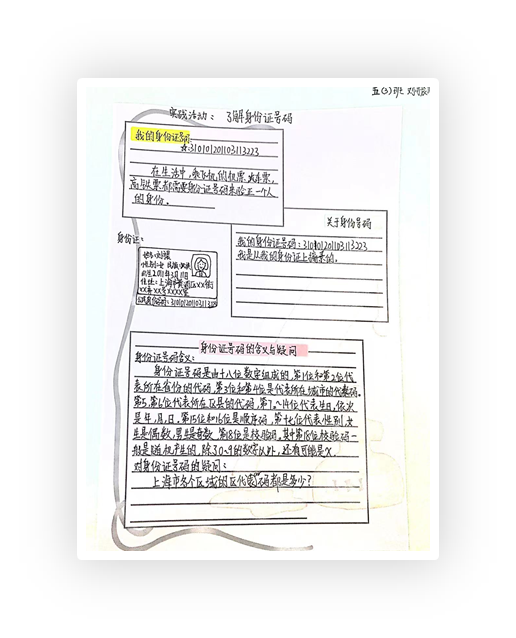 五(3)班
实践活动：了解身份证号码
我的身份证号码
☆:310101201103113223
在生活中，乘飞机的机票，火车票，
高铁票都需要身份证号码来验证一个人
的身份。
关于身份号码
我的身份证号码：310101201103113223
我是从我的身份证上摘来的。
身份证：
性别:女 民族:汉族
住址:上海市黄浦区xx街
身份证号码的含义与疑问
身份证号码含义：
身份证号码是由十八位数字组成的，第1位和第2位代
表所在省份的代码，第3位和第4位是代表所在城市的代码。
第5,第6位代表所在区县的代码，第7~14位代表生日，依次
是年，月，日，第15位和16位是顺序码，第十七位代表性别，女
生是偶数，男生是奇数，第18位是校验码，其中第18位校验码一
般是随机产生的，除了0~9的数字以外，还有可能是X。
对身份证号码的疑问：
上海市各个区域的区代码都是多少？